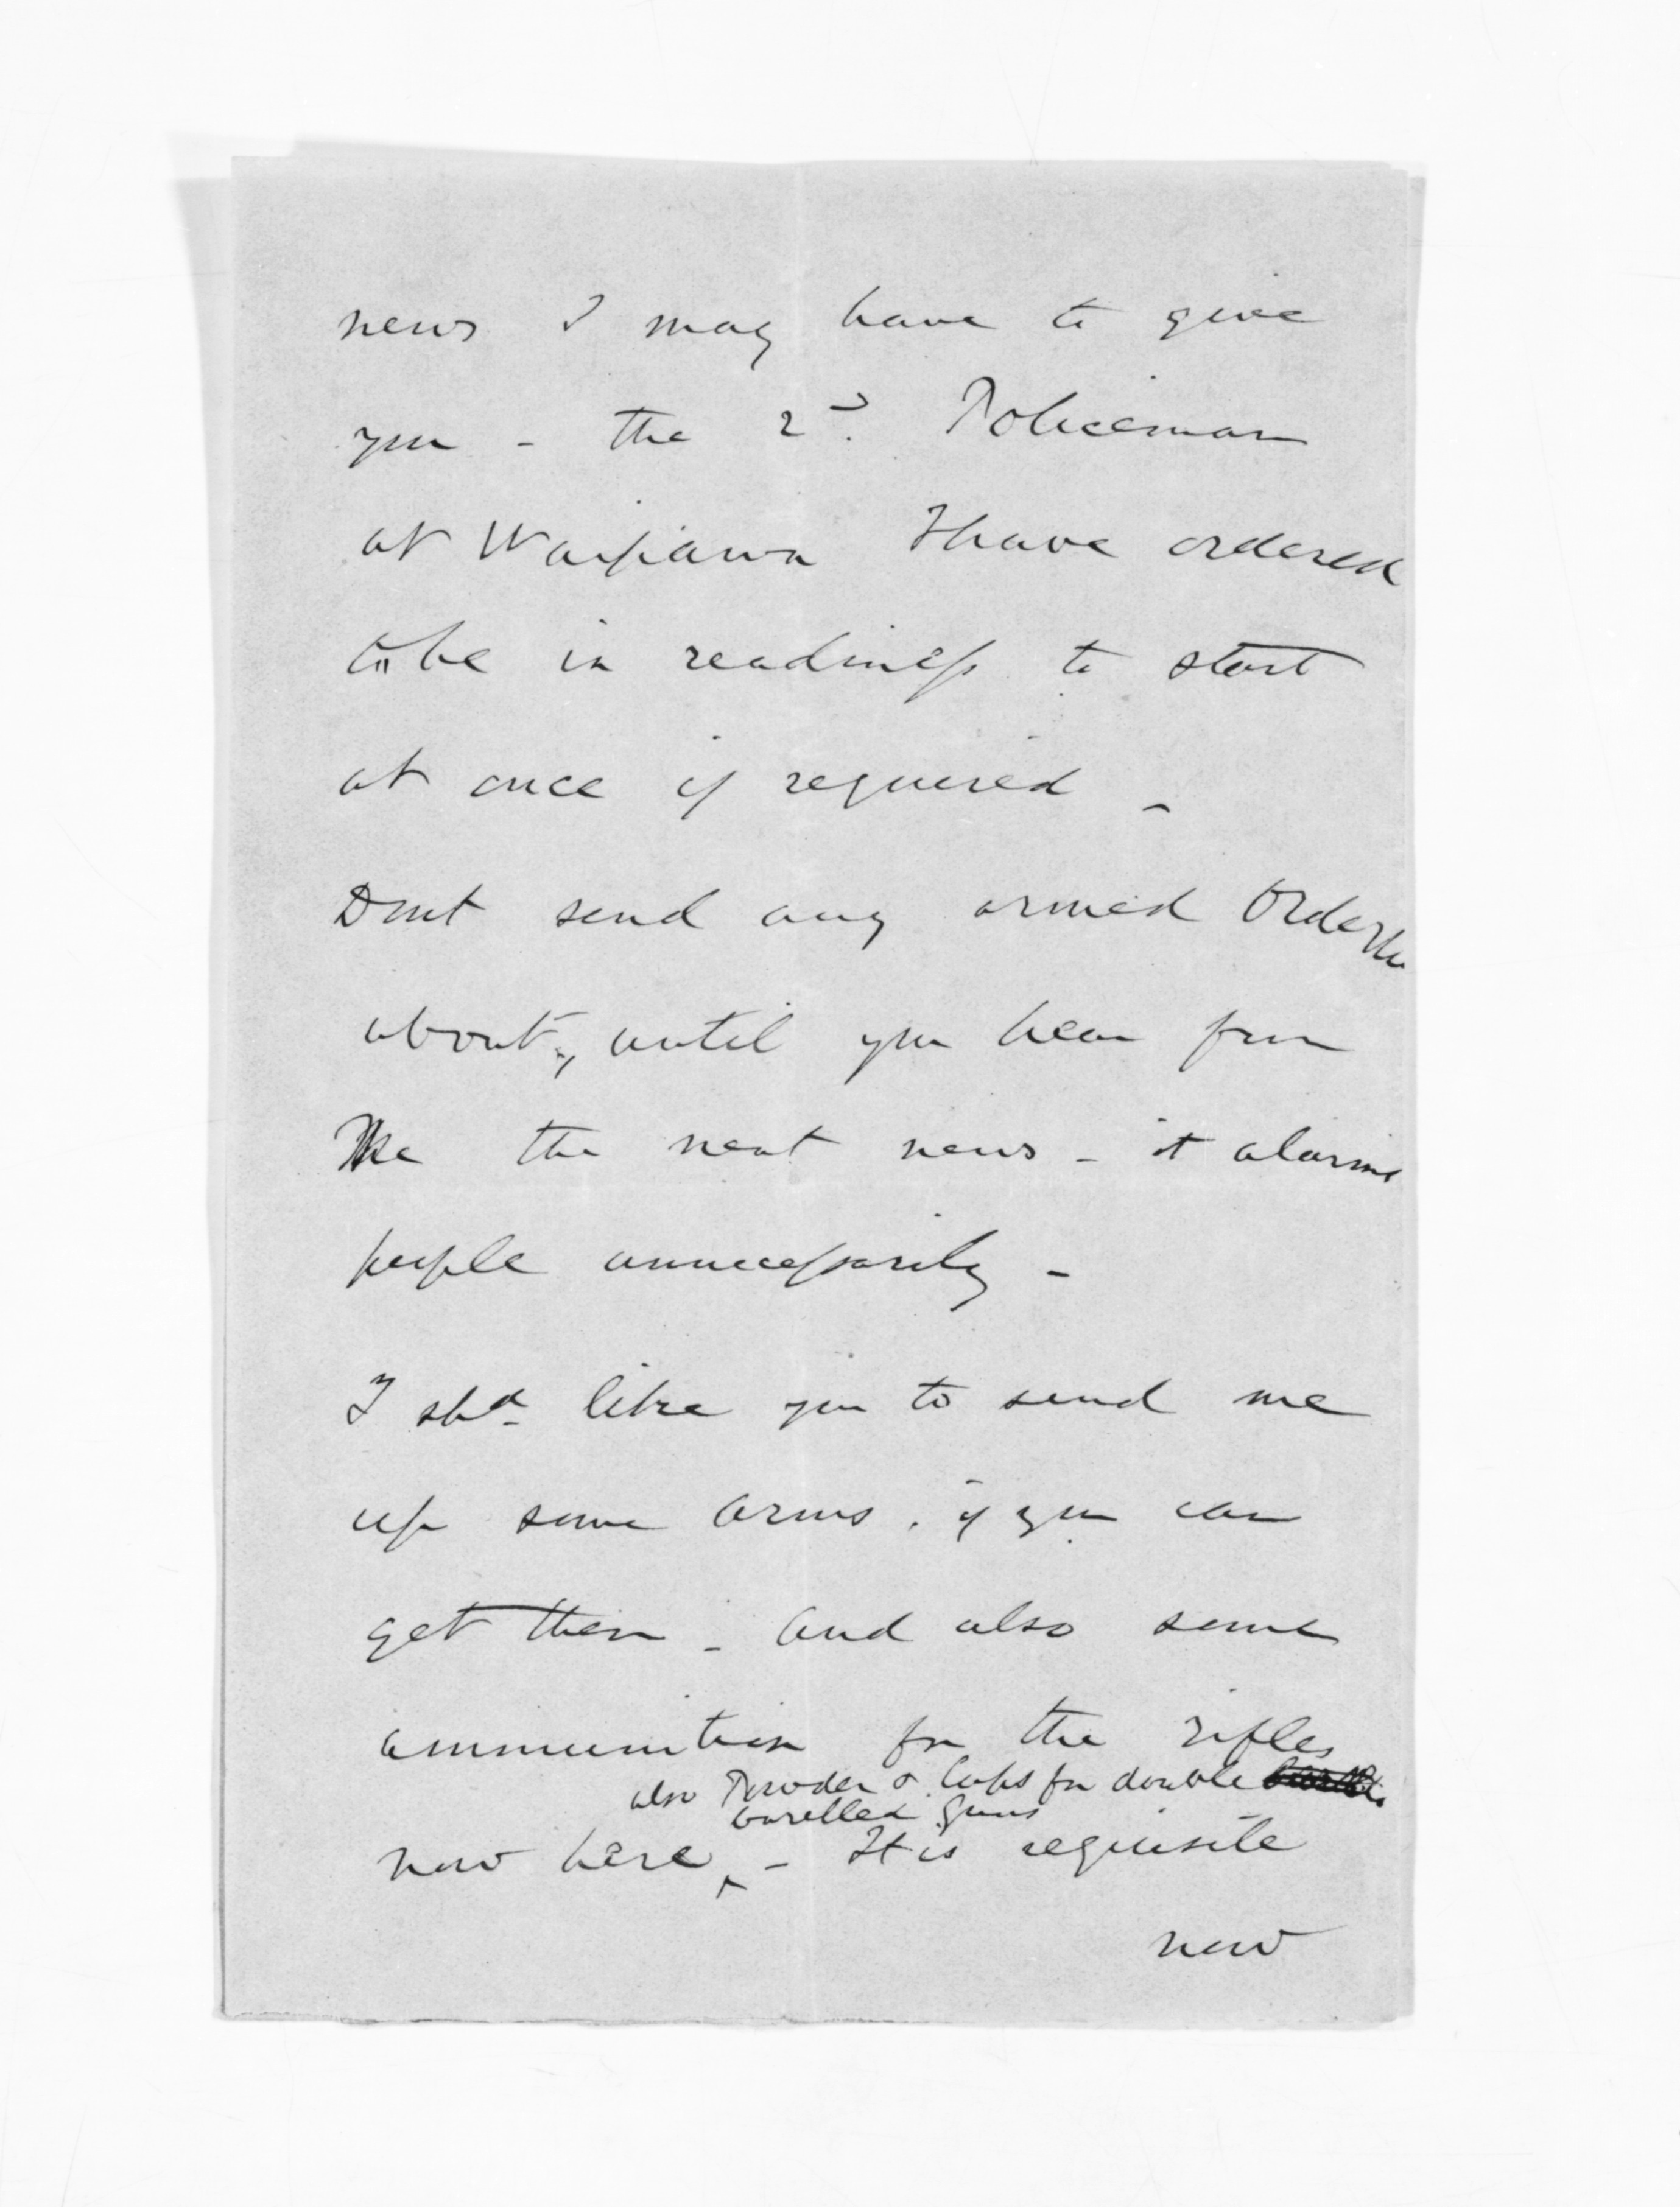 news I may have to give
you - the 2d. Policeman
at Waipawa I have ordered
to be in readiness to start
at once if required -
Dont send any armed
about, until you hear from
me the next news - it alarms
people unnecessarily -
I shd. like you to send me
up some arms, if you can
get them - and also some
ammunition for the rifles
also Powder & Caps for double
barelled guns
now here, - It is requisite
now